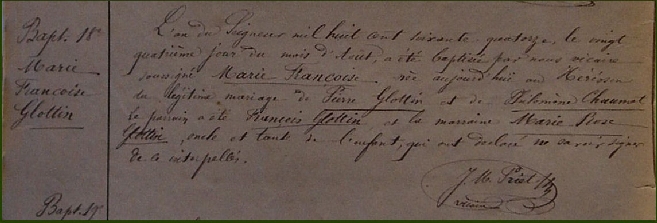 Bapt. 18e
Marie
Françoise
Glottin
L'an du Seigneur mil huit cent soixante quatorze, le vingt
quatrième jour du mois d'Août, a été baptisée par nous vicaire
soussigné Marie Françoise née aujourd'hui au
du légitime mariage de Pierre Glottin et de Philomène Chaumat
Le parrain a été François Glottin et la marraine Marie Rose
Glottin, oncle et tante de l'enfant, qui ont déclaré ne savoir signer
de ce interpellés.
J. M. Priet
vicaire
Bapt. 19e